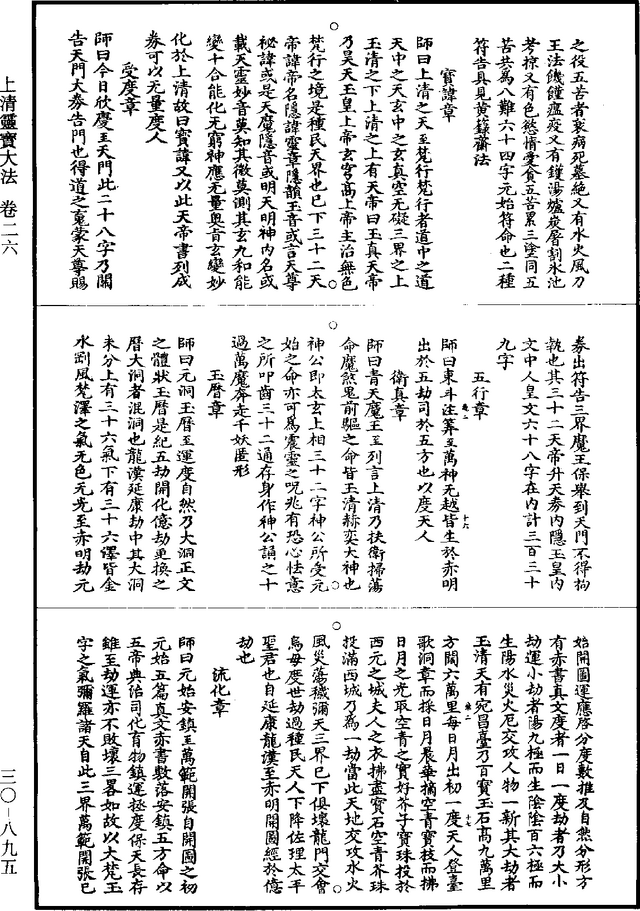 之役五苦者衰病死墓絕又有水火風刀
王法饑饉瘟疫又有鑊湯爐炭磨剉氷池
考掠又有色慾情愛食五苦累三塗同五
苦共為八難六十四字元始符命也二種
符告具見黄籙齋法
寳諱章
師曰上清之天至梵行梵行者道中之道
天中之天玄中之玄真空无礙三界之上
玉清之下上清之上有天帝曰玉真天帝
乃昊天玉皇上帝玄穹髙上帝主治無色
梵行之境是種民天界也巳下三十二天
帝諱帝名隱諱靈章隱韻玉音或言天尊
祕諱或是天魔隱音或明天明神内名或
載天靈妙音莫知其微莫測其玄九和能
變十合能化无窮神應无量奥旨玄變妙
化於上清故曰寳諱又以此天帝書列成
券可以无量度人
受度章
師曰今日欣慶至天門此二十八字乃關
告天門大券告門也得道之䰟蒙天尊賜
券出符告三界魔王保舉到天門不得拘
執也其三十二天帝升天券内隱玉皇内
文中人皇文六十八字在内計三百三十
九字
五行章
師曰東斗注筭至萬神无越皆生於赤明
出於五劫司於五方也以度天人
衛真章
師曰青天魔王至列言上清乃扶衛掃蕩
命魔煞鬼前驅之命皆玉清赫奕大神也
神公即太玄上相三十二字神公所受元
始之命亦可為震靈之呪兆有恐心怯意
之所叩齒三十二通存身作神公誦之十
過萬魔奔走千妖匿形
玉曆章
師曰元洞玉曆至運度自然乃大洞正文
之體狀玉曆是紀五劫開化億劫更換之
曆大洞者混洞也龍漢延康劫中其大洞
未分上有三十六氣下有三十六譯皆金
水剛風梵澤之氣无色元光至亦明劫元
始開圖運應啓分度數推及自然分形方
有赤書真文度者一日一度劫者乃大小
劫運小劫者陽九極而生陰陰百六極而
生陽水災火厄交攻人物一新其大劫者
玉清天有宛昌臺乃百寳玉石髙九萬里
方闊六萬里每日月出初一度天人登臺
歌洞章而採日月晨華摘空青寳枝而拂
日月之光取空青之寳好芥子寳珠投於
西元之城夫人之衣拂盡寳石空青芥珠
投滿西城乃為一劫當此天地交攻水火
風災蕩穢彌天三界巳下俱壞龍門交會
鳥母度世劫過種民天人下降佐理太平
聖君也自延康龍漢至赤明開圖經於億
劫也
流化章
師曰元始安鎮至萬範開張自開圖之初
元始五篇真文赤書敷落安鎮五方命以
五帝典治司化育物鎮運拯度保天長存
雖至劫運亦不敗壞三畧如故以大梵玉
字之氣彌羅諸天自此三界萬範開張巳
上清靈寶大法　卷二六
三〇－八九五